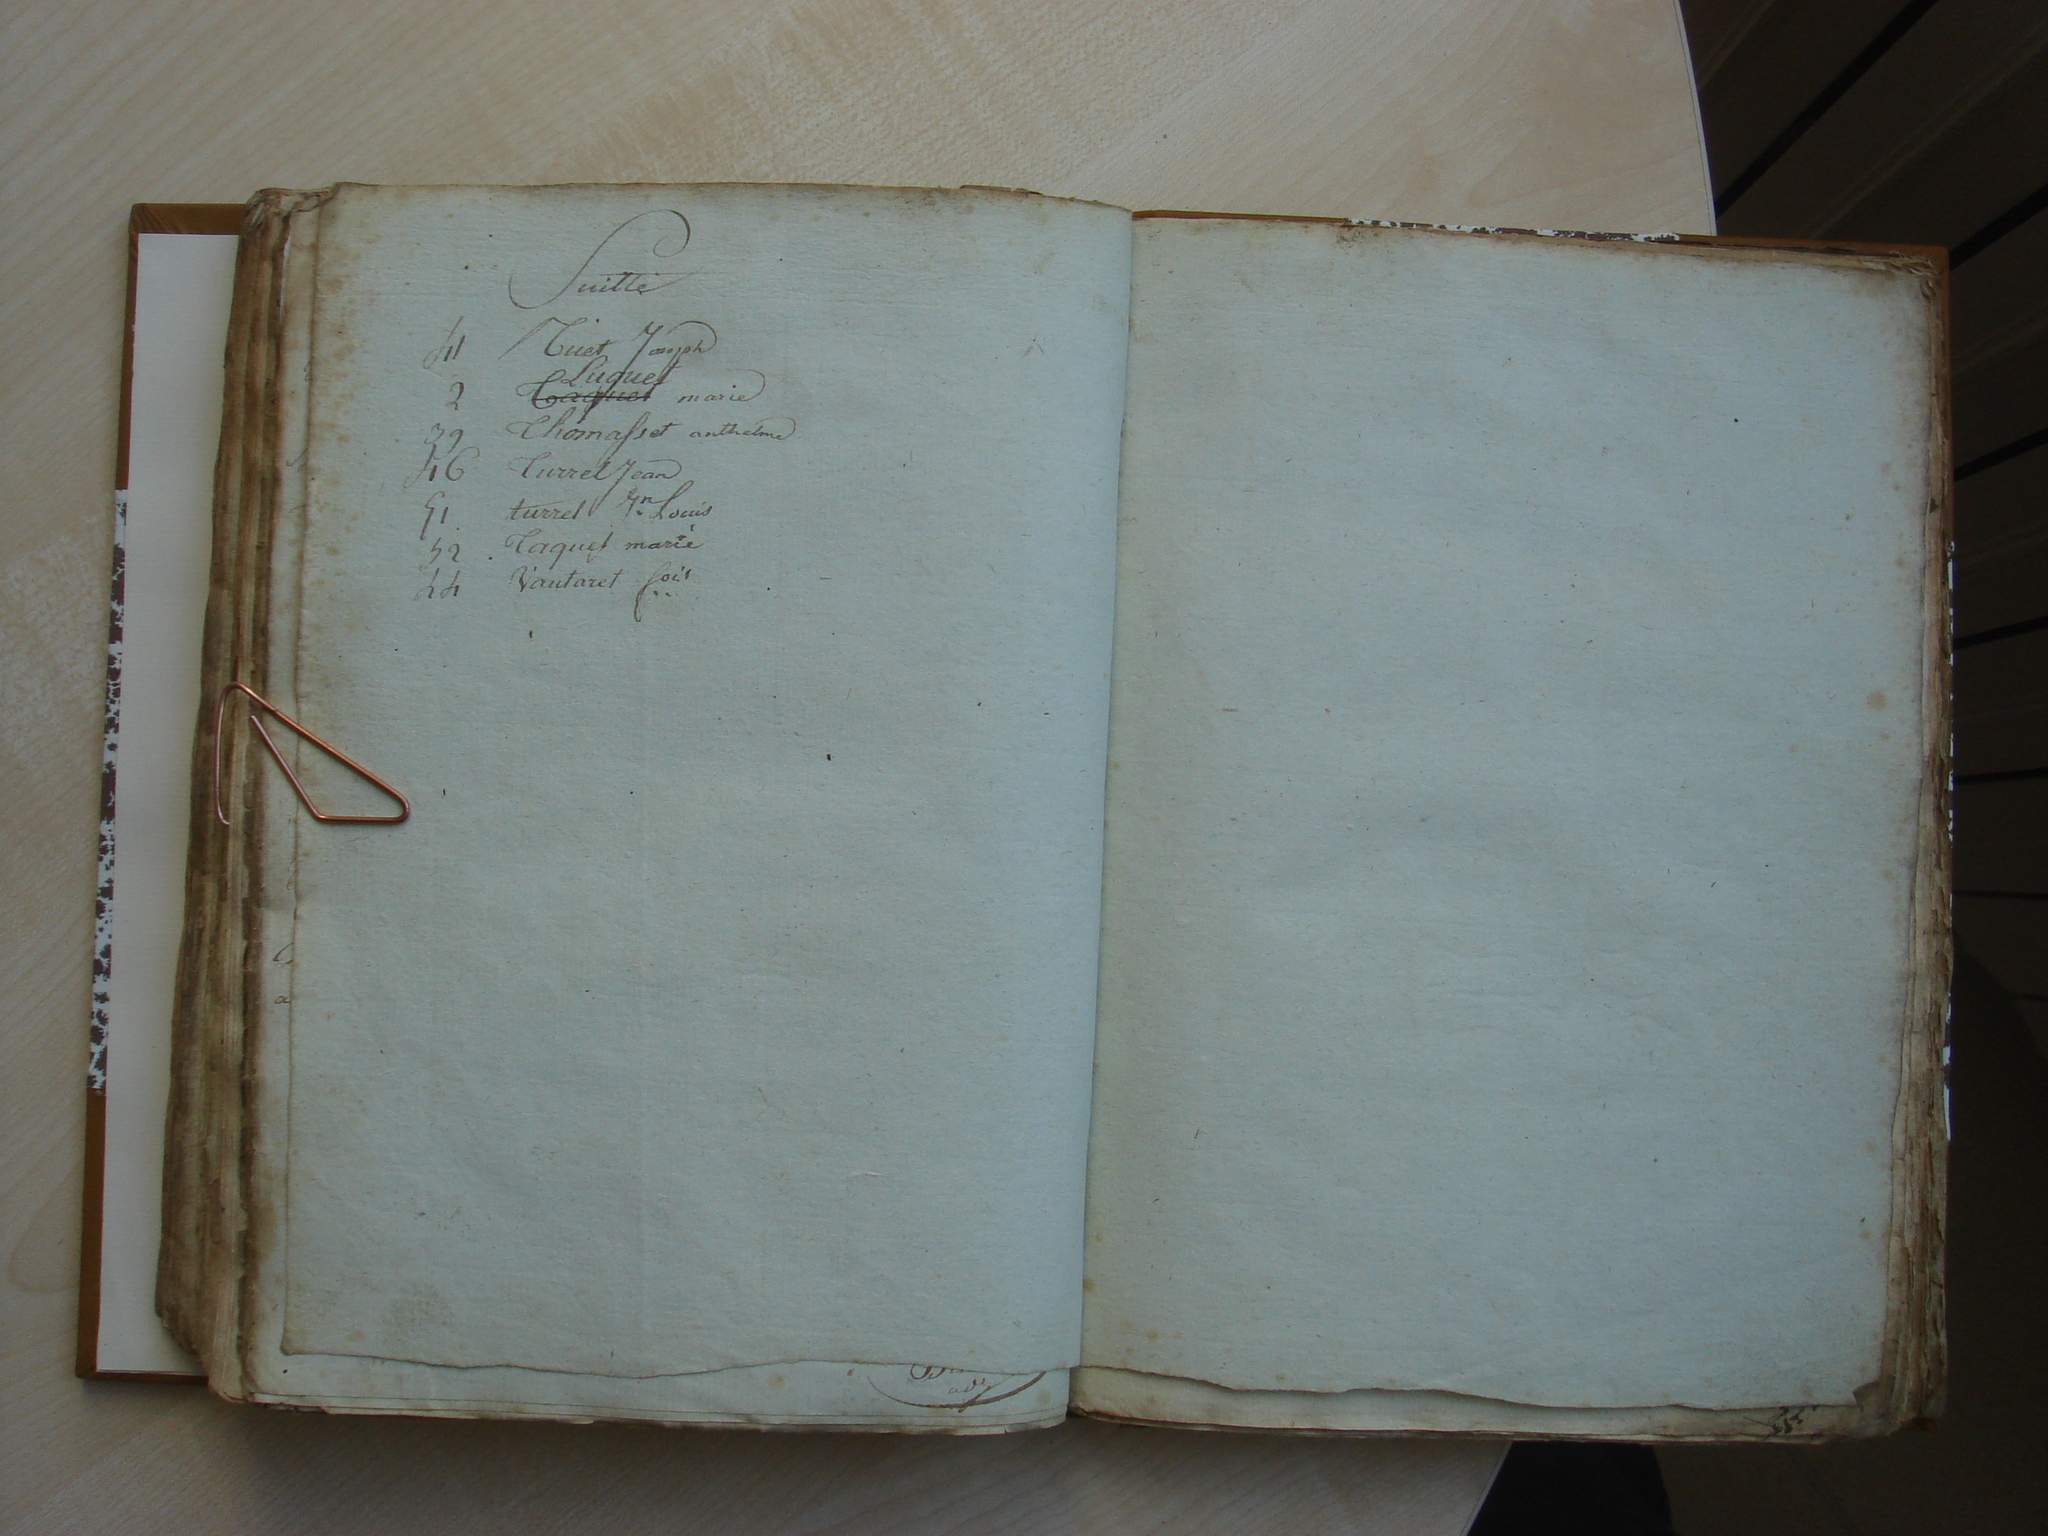 Suitte
41 Tuet Joseph
Luquet
2 Taquet marie
39 Thomasset anthelme
46 Turrel Jean
51 turrel Jn Louis
52 Taquet marie
44 Vautaret fois